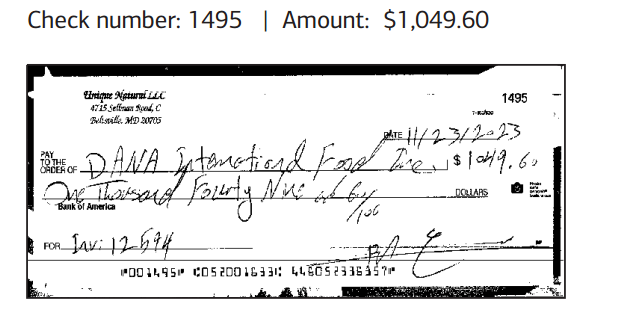 Check number: 1495 | Amount: $1,049.60
Unique Natural LLC
1495
4715 Sellman Road, C
Beltsville, MD 20705
DATE 11/23/2023
PAY TO THE ORDER OF DANA International Food Inc $1049.60
One Thousand Fourty Nine 60/100 DOLLARS
Bank of America
FOR Inv: 12594
⑈001495⑈ ⑆052001633⑆ 446052336357⑈